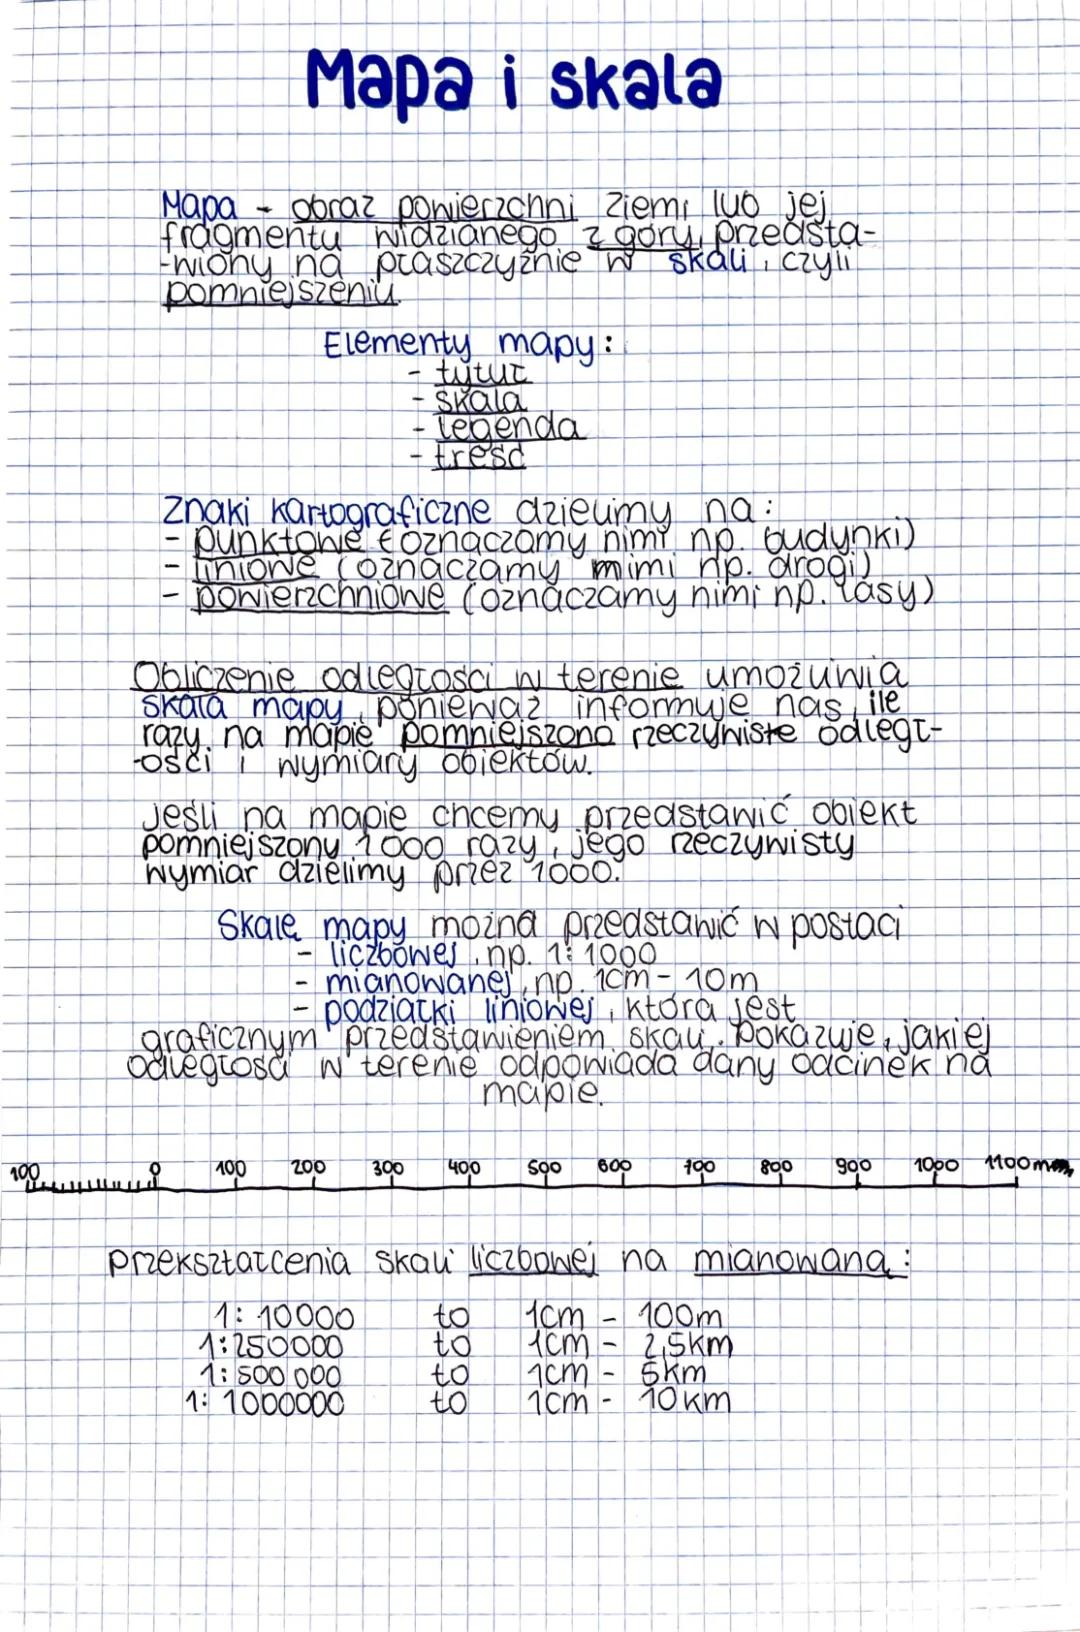 Mapa i skala
Mapa - obraz powierzchni ziemi lub jej
fragmentu widzianego z góry, przedsta-
-wiony na płaszczyźnie w skali, czyli
pomniejszeniu.
Elementy mapy:
- tytuł
- skala
- legenda
- treść
Znaki kartograficzne dzielimy na:
- punktowe (oznaczamy nimi np. budynki)
- liniowe (oznaczamy mimi np. drogi)
- powierzchniowe (oznaczamy nimi np. lasy)
Obliczenie odległości w terenie umożliwia
skala mapy, ponieważ informuje nas, ile
razy na mapie pomniejszono rzeczywiste odległ-
-ości i wymiary obiektów.
Jeśli na mapie chcemy przedstawić obiekt
pomniejszony 1000 razy, jego rzeczywisty
wymiar dzielimy przez 1000.
Skalę mapy można przedstawić w postaci
- liczbowej, np. 1:1000
- mianowanej, np. 1cm - 10m
- podziałki liniowej, która jest
graficznym przedstawieniem skali. Pokazuje, jakiej
odległości w terenie odpowiada dany odcinek na
mapie.
100 0 100 200 300 400 500 600 700 800 900 1000 1100 m
Przekształcenia skali liczbowej na mianowaną:
1: 10000 to 1cm - 100m
1:250000 to 1cm - 2,5km
1:500 000 to 1cm - 5km
1: 1000000 to 1cm - 10km